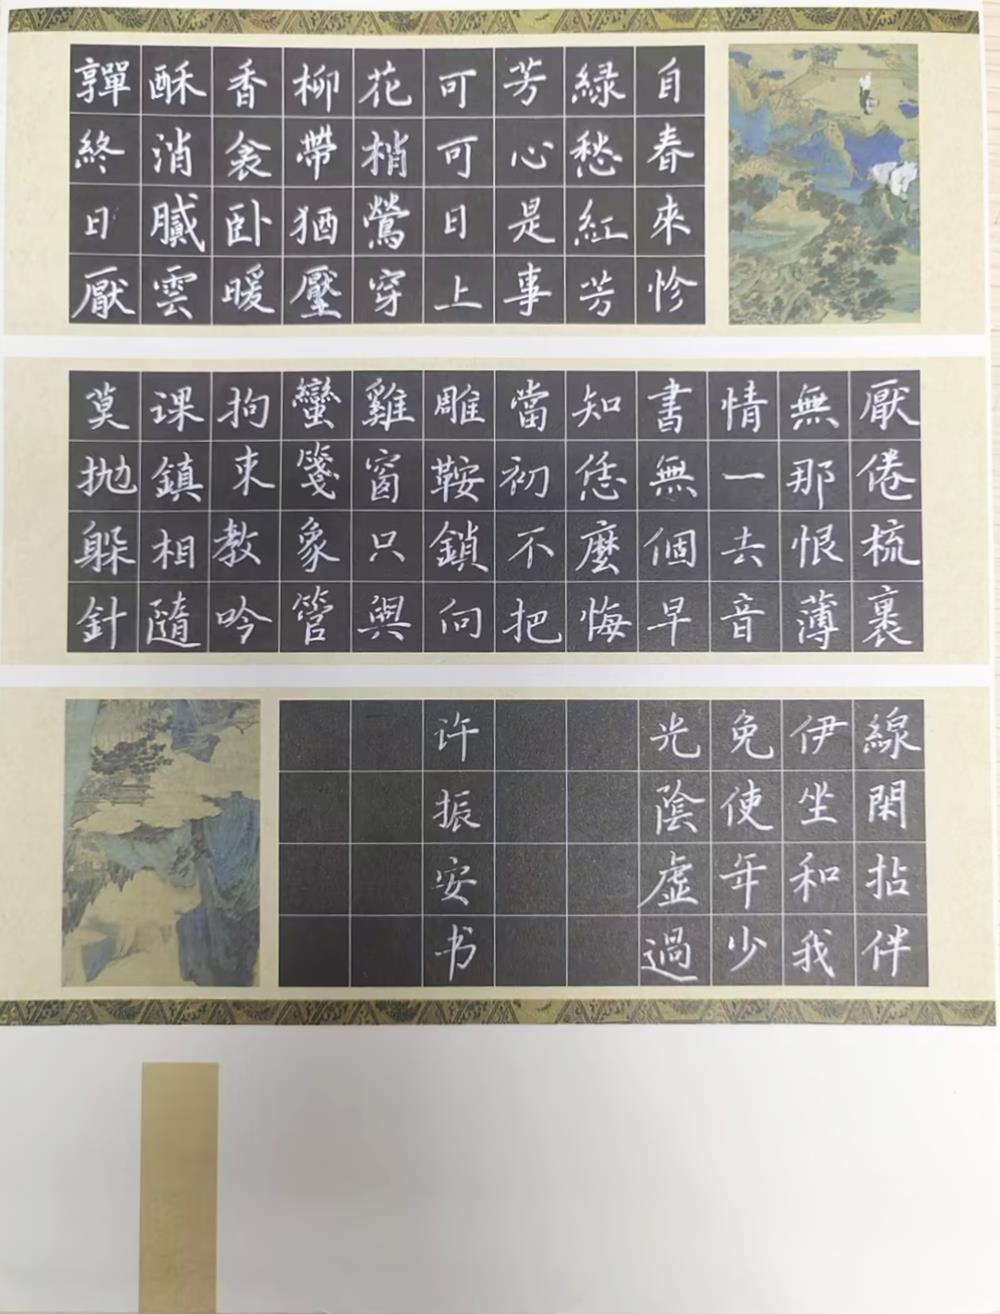 自春來惨
綠愁紅芳
芳心是事
可可日上
花梢鶯穿
柳帶猶壓
香衾卧暖
酥消膩雲
嚲終日厭
厭倦梳裹
無那恨薄
情一去音
書無個早
知恁麼悔
當初不把
雕鞍鎖向
雞窗只與
蠻箋象管
拘束教吟
课鎮相隨
莫抛躲針
線閑拈伴
伊坐和我
免使年少
光陰虛過
许振安书